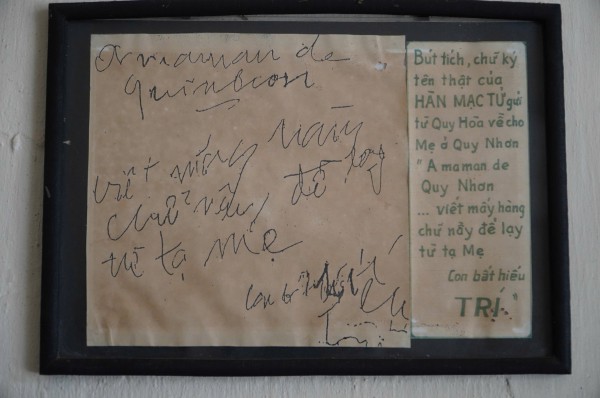 A maman de
Quinhon
viết mấy hàng
chữ nầy để lạy
từ tạ mẹ
Con bất hiếu
Bút tích, chữ ký
tên thật của
HÀN MẠC TỬ gửi
từ Quy Hòa về cho
Mẹ ở Quy Nhơn
"A maman de
Quy Nhơn
... viết mấy hàng
chữ nầy để lạy
từ tạ Mẹ
Con bất hiếu
TRÍ"